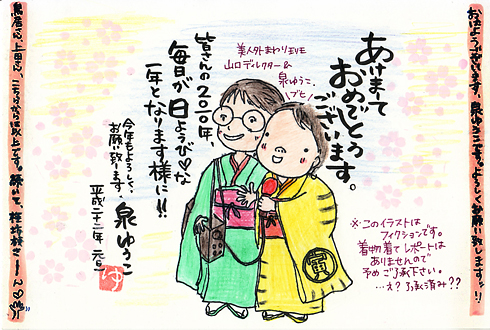 おはようございます。泉ゆうこです。よろしくお願い致しまーすッ!!
あけまして
おめでとう
ございます。
美人外まわり
山口ディレクター&
泉ゆうこ。
皆さんの二〇一〇年、
毎日が日ようび♡な
一年となります様に!!
今年もよろしく、
お願い致します。
泉ゆうこ
平成二十二年 元旦
ゆ
寅
※このイラストは
フィクションです。
着物着てレポートは
ありませんので
予めご了承下さい。
…え?了承済み??
鳥居さん、上田さん、こちらからは以上です。続いて、